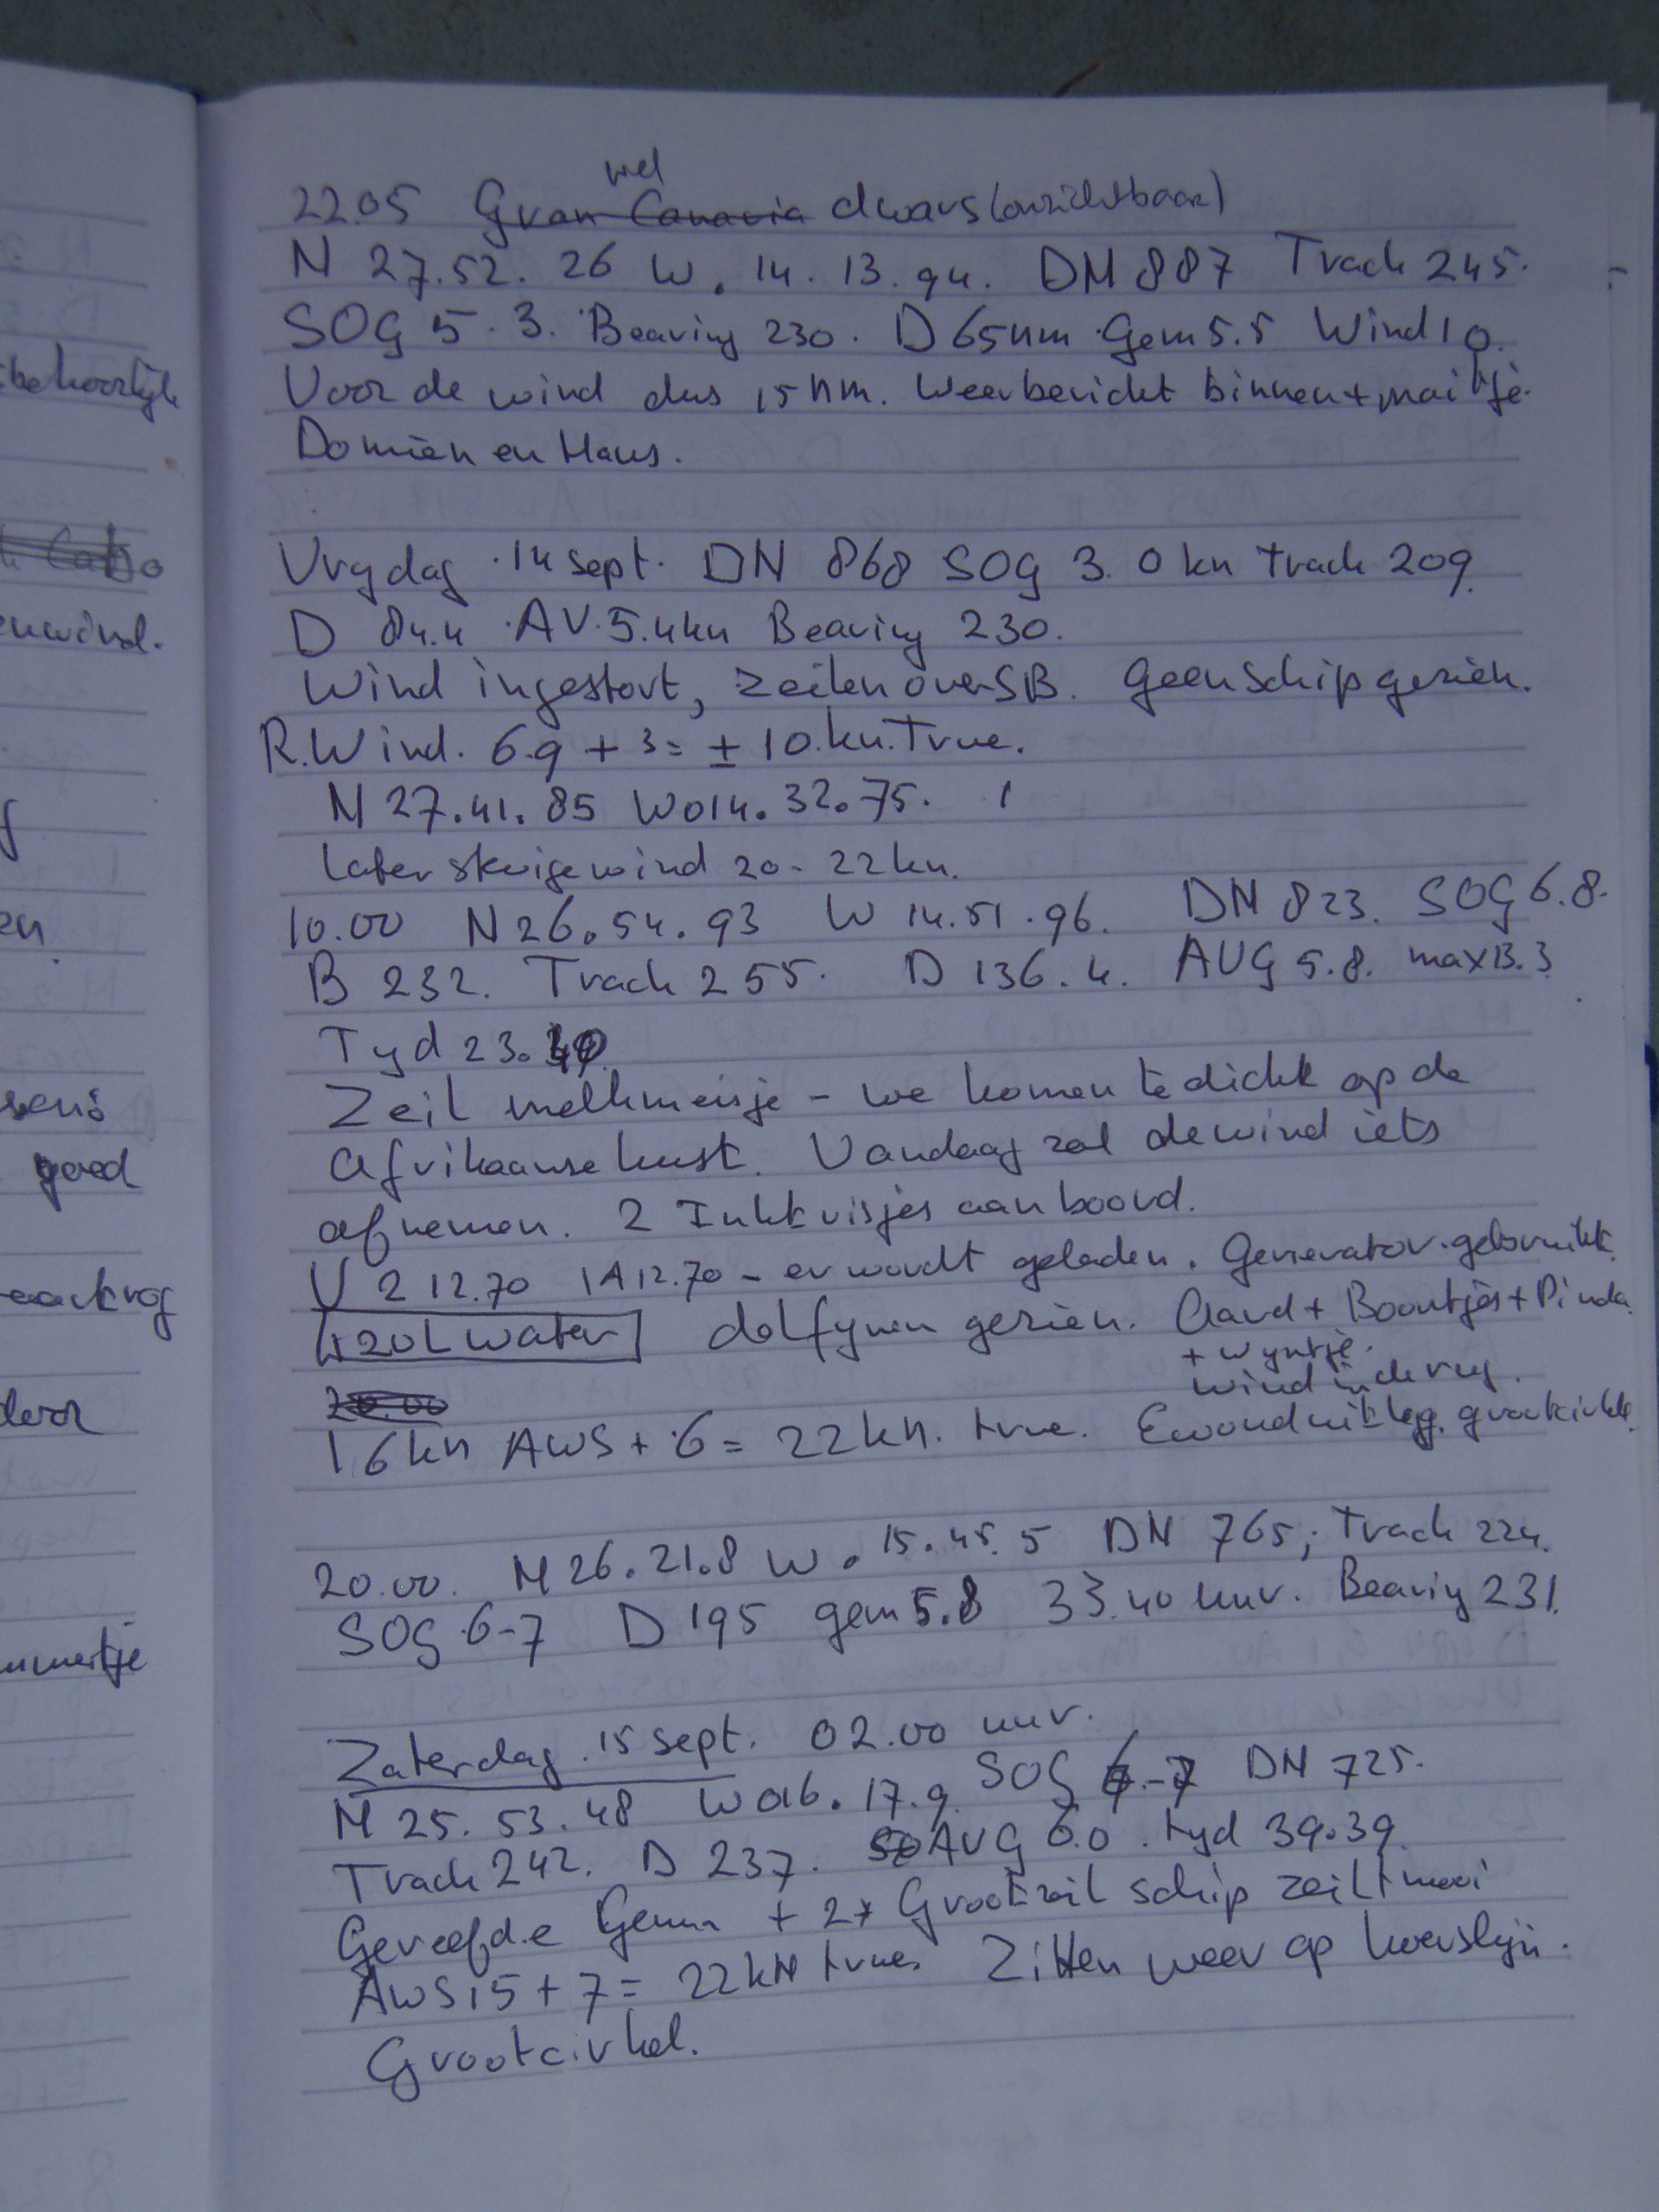 behoorlijk
Cabo
enwind.
en.
sens
goed
door
mmertje
wel
22.05 Gran Canaria dwars (onzichtbaar)
N 27.52.26 W. 14.13.94. DN 887 Track 245.
SOG 5.3. Bearing 230. D 65nm Gem 5.5 Wind 10.
Voor de wind dus 15nm. Weerbericht binnen + mailtje
Domien en Hans.
Vrydag 14 sept. DN 868 SOG 3.0 kn Track 209.
D 84.4 AV. 5.4kn Bearing 230.
Wind ingestort, zeilen over SB. Geen schip gezien.
R.Wind. 6.9 + 3 = ± 10.kn.True.
N 27.41.85 W014.32.75.
Later stevige wind 20-22kn.
10.00 N26.54.93 W 14.51.96. DN 823. SOG 6.8.
B 232. Track 255. D 136.4. AVG 5.8. max 13.3
Tyd 23.40
Zeil melkmeisje - we komen te dicht op de
Afrikaanse kust. Vandaag zal de wind iets
afnemen. 2 Inktvisjes aan boord.
V 2 12.70 1A 12.70 - er wordt geladen. Generator gebruikt.
420L water dolfynen gezien. Aard + Boontjes + Pinda
+ wyntje.
wind in de rug.
20.00
16kn AWS + 6 = 22kn. true. Ewoud uitleg grootcirkel.
20.00. N 26.21.8 W. 15.45.5 DN 765; Track 224.
SOG 6-7 D 195 gem 5.8 33.40 uur. Bearing 231.
Zaterdag 15 sept. 02.00 uur.
N 25.53.48 W016.17.9. SOG 6-7 DN 725.
Track 242. D 237. AVG 6.0. tyd 39.39.
Gereefde Genua + 2x Grootzeil schip zeilt mooi
AWS 15 + 7 = 22kN true. Zitten weer op koerslijn.
Grootcirkel.